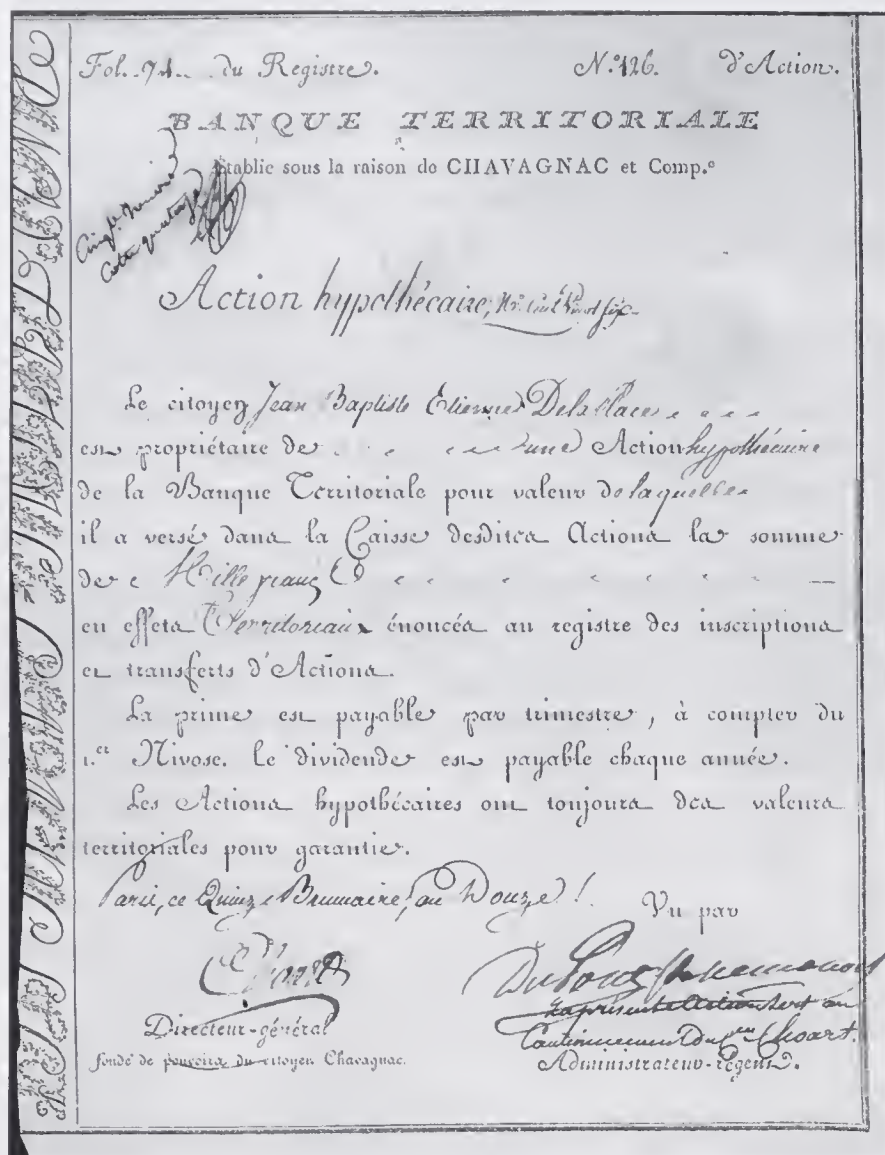 Fol. 74. du Registre. N.º 126. d'Action.
BANQUE TERRITORIALE
Établie sous la raison de CHAVAGNAC et Comp.e
Action hypothécaire, N.º Cent Vingt six
Le citoyen Jean Baptiste Etienne Delaplace
est propriétaire de une Action hypothécaire
de la Banque Territoriale pour valeur de laquelle
il a versé dans la Caisse desdites Actions la somme
de Mille francs
en effets Territoriaux énoncés au registre des inscriptions
et transferts d'Actions.
La prime est payable par trimestre, à compter du
1.er Nivose. le dividende est payable chaque année.
Les Actions hypothécaires ont toujours des valeurs
territoriales pour garantie.
Paris, ce Quinze Brumaire, an Douze.
Vu par
DuPont (de Nemours)
Directeur-général
la présente action sert au
Cautionnement du Cen Choart.
fondé de pouvoirs du citoyen Chavagnac.
Administrateur-régent.